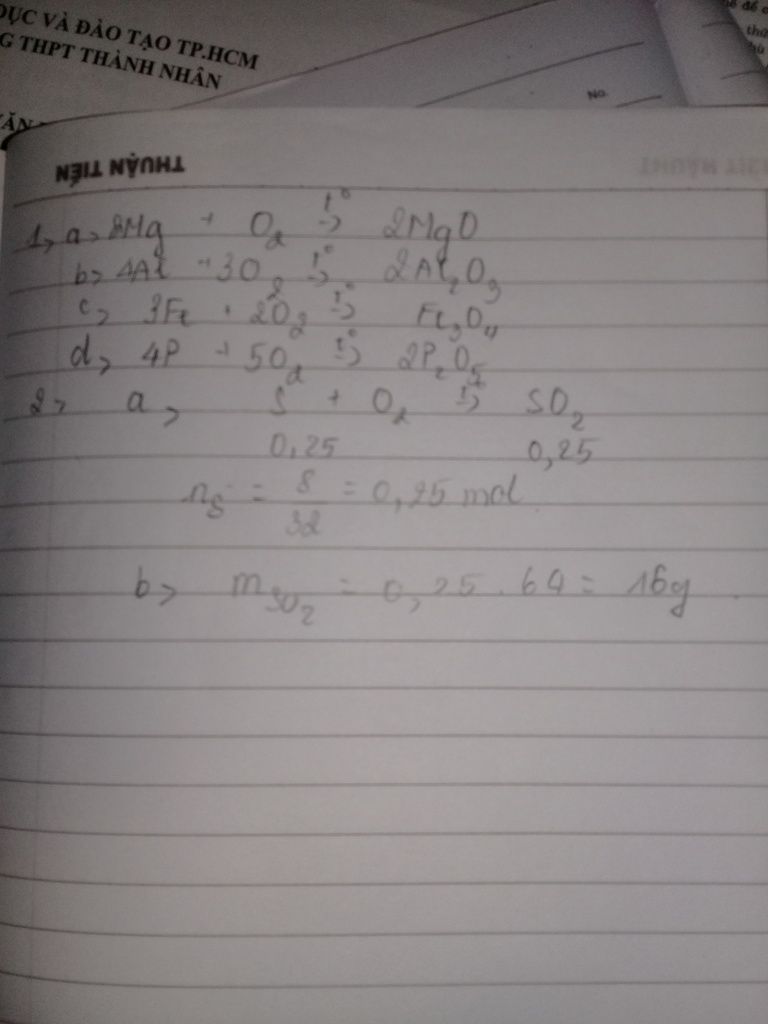 DỤC VÀ ĐÀO TẠO TP.HCM
G THPT THÀNH NHÂN
No.
THUẬN TIẾN
1, a, 2Mg + O₂ t°→ 2MgO
b, 4Al + 3O₂ t°→ 2Al₂O₃
c, 3Fe + 2O₂ t°→ Fe₃O₄
d, 4P + 5O₂ t°→ 2P₂O₅
2, a, S + O₂ t°→ SO₂
0,25 0,25
nS = 8/32 = 0,25 mol
b, mSO₂ = 0,25 . 64 = 16g